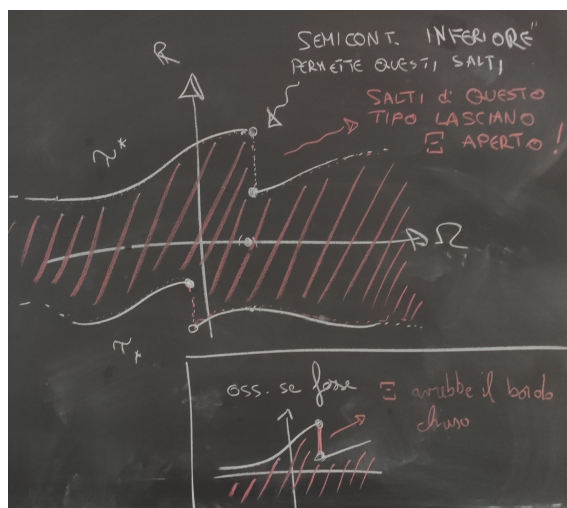 SEMICONT. INFERIORE"
PERMETTE QUESTI SALTI
SALTI di QUESTO
TIPO LASCIANO
Ξ APERTO!
R
τ*
Ω
τ*
oss. se fosse
Ξ avrebbe il bordo
chiuso